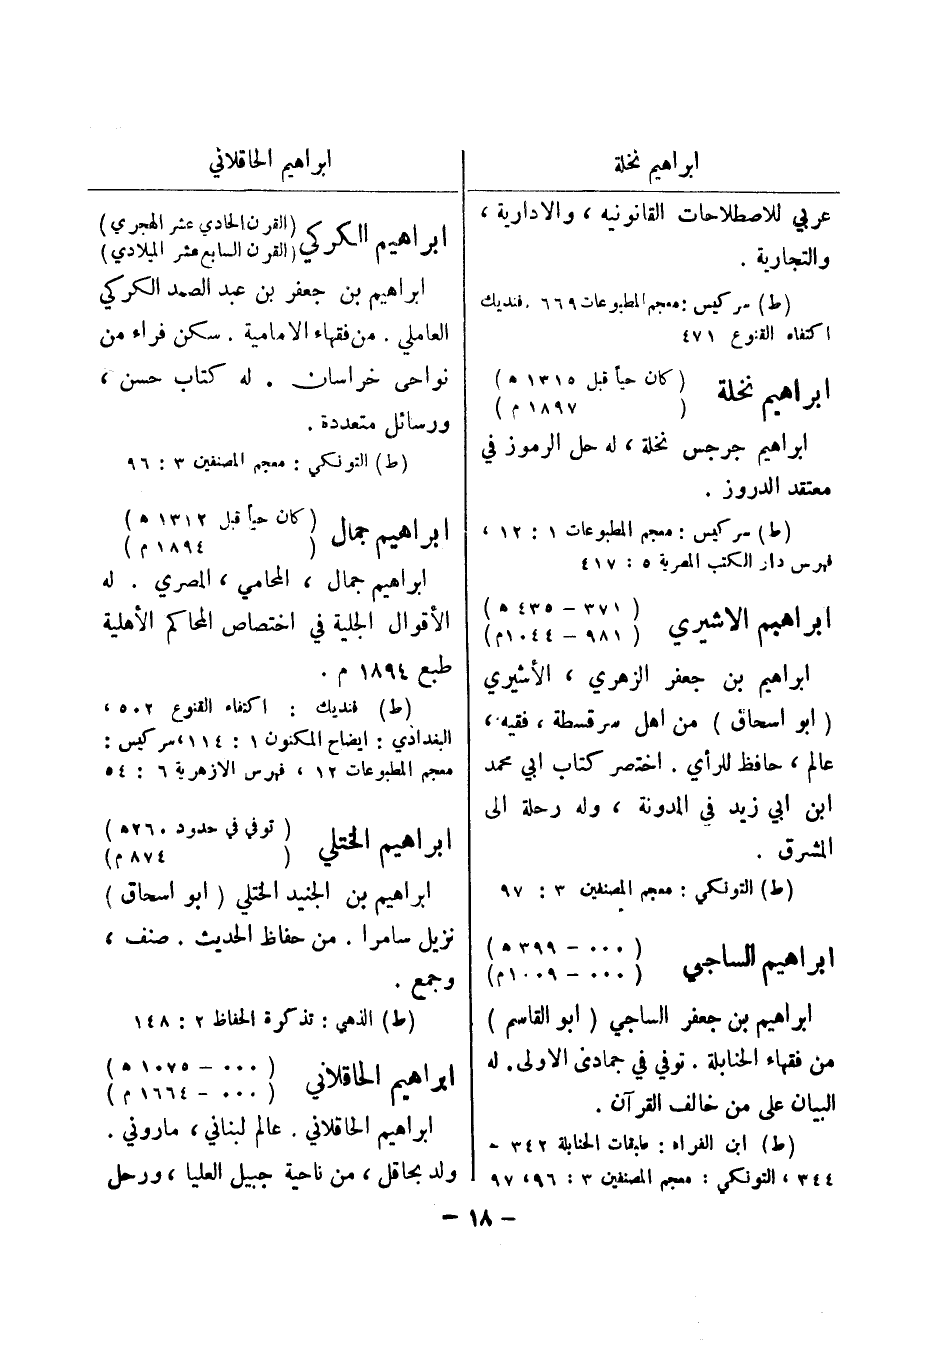 ابراهيم نخلة
عربي للاصطلاحات القانونيه ، والادارية ،
والتجارية .
(ط) سركيس : معجم المطبوعات ٦٦٩ . فنديك
اكتفاء القنوع ٤٧١
ابراهيم نخلة ( كان حياً قبل ١٣١٥ ه )
( ١٨٩٧ م )
ابراهيم جرجس نخلة ، له حل الرموز في
معتقد الدروز .
(ط) سركيس : معجم المطبوعات ١ : ١٢ ،
فهرس دار الكتب المصرية ٥ : ٤١٧
ابراهيم الاشيري ( ٣٧١ – ٤٣٥ ه )
( ٩٨١ – ١٠٤٤م )
ابراهيم بن جعفر الزهري ، الأشيري
( ابو اسحاق ) من اهل سرقسطة ، فقيه ،
عالم ، حافظ للرأي . اختصر كتاب ابي محمد
ابن ابي زيد في المدونة ، وله رحلة الى
المشرق .
(ط) التونكي : معجم المصنفين ٣ : ٩٧
ابراهيم الساجي ( ٠٠٠ – ٣٩٩ ه )
( ٠٠٠ – ١٠٠٩م )
ابراهيم بن جعفر الساجي ( ابو القاسم )
من فقهاء الحنابلة . توفي في جمادى الاولى . له
البيان على من خالف القرآن .
(ط) ابن الفراء : طبقات الحنابلة ٣٤٢ -
٣٤٤ ، التونكي : معجم المصنفين ٣ : ٩٦، ٩٧
ابراهيم الحاقلاني
ابراهيم الكركي (القرن الحادي عشر الهجري)
(القرن السابع عشر الميلادي)
ابراهيم بن جعفر بن عبد الصمد الكركي
العاملي . من فقهاء الامامية . سكن فراء من
نواحى خراسان . له كتاب حسن ،
ورسائل متعددة .
(ط) التونكي : معجم المصنفين ٣ : ٩٦
ابراهيم جمال ( كان حياً قبل ١٣١٢ ه )
( ١٨٩٤ م )
ابراهيم جمال ، المحامي ، المصري . له
الأقوال الجلية في اختصاص المحاكم الأهلية
طبع ١٨٩٤ م .
(ط) فنديك : اكتفاء القنوع ٥٠٢ ،
البغدادي : ايضاح المكنون ١ : ١١٤، سركيس :
معجم المطبوعات ١٢ ، فهرس الازهرية ٦ : ٥٤
ابراهيم الختلي ( توفي في حدود ٢٦٠ه )
( ٨٧٤م )
ابراهيم بن الجنيد الختلي ( ابو اسحاق )
نزيل سامرا . من حفاظ الحديث . صنف ،
وجمع .
(ط) الذهبي : تذكرة الحفاظ ٢ : ١٤٨
ابراهيم الحاقلاني ( ٠٠٠ – ١٠٧٥ ه )
( ٠٠٠ – ١٦٦٤ م )
ابراهيم الحاقلاني . عالم لبناني ، ماروني .
ولد بحاقل ، من ناحية جبيل العليا ، ورحل
– ١٨ –